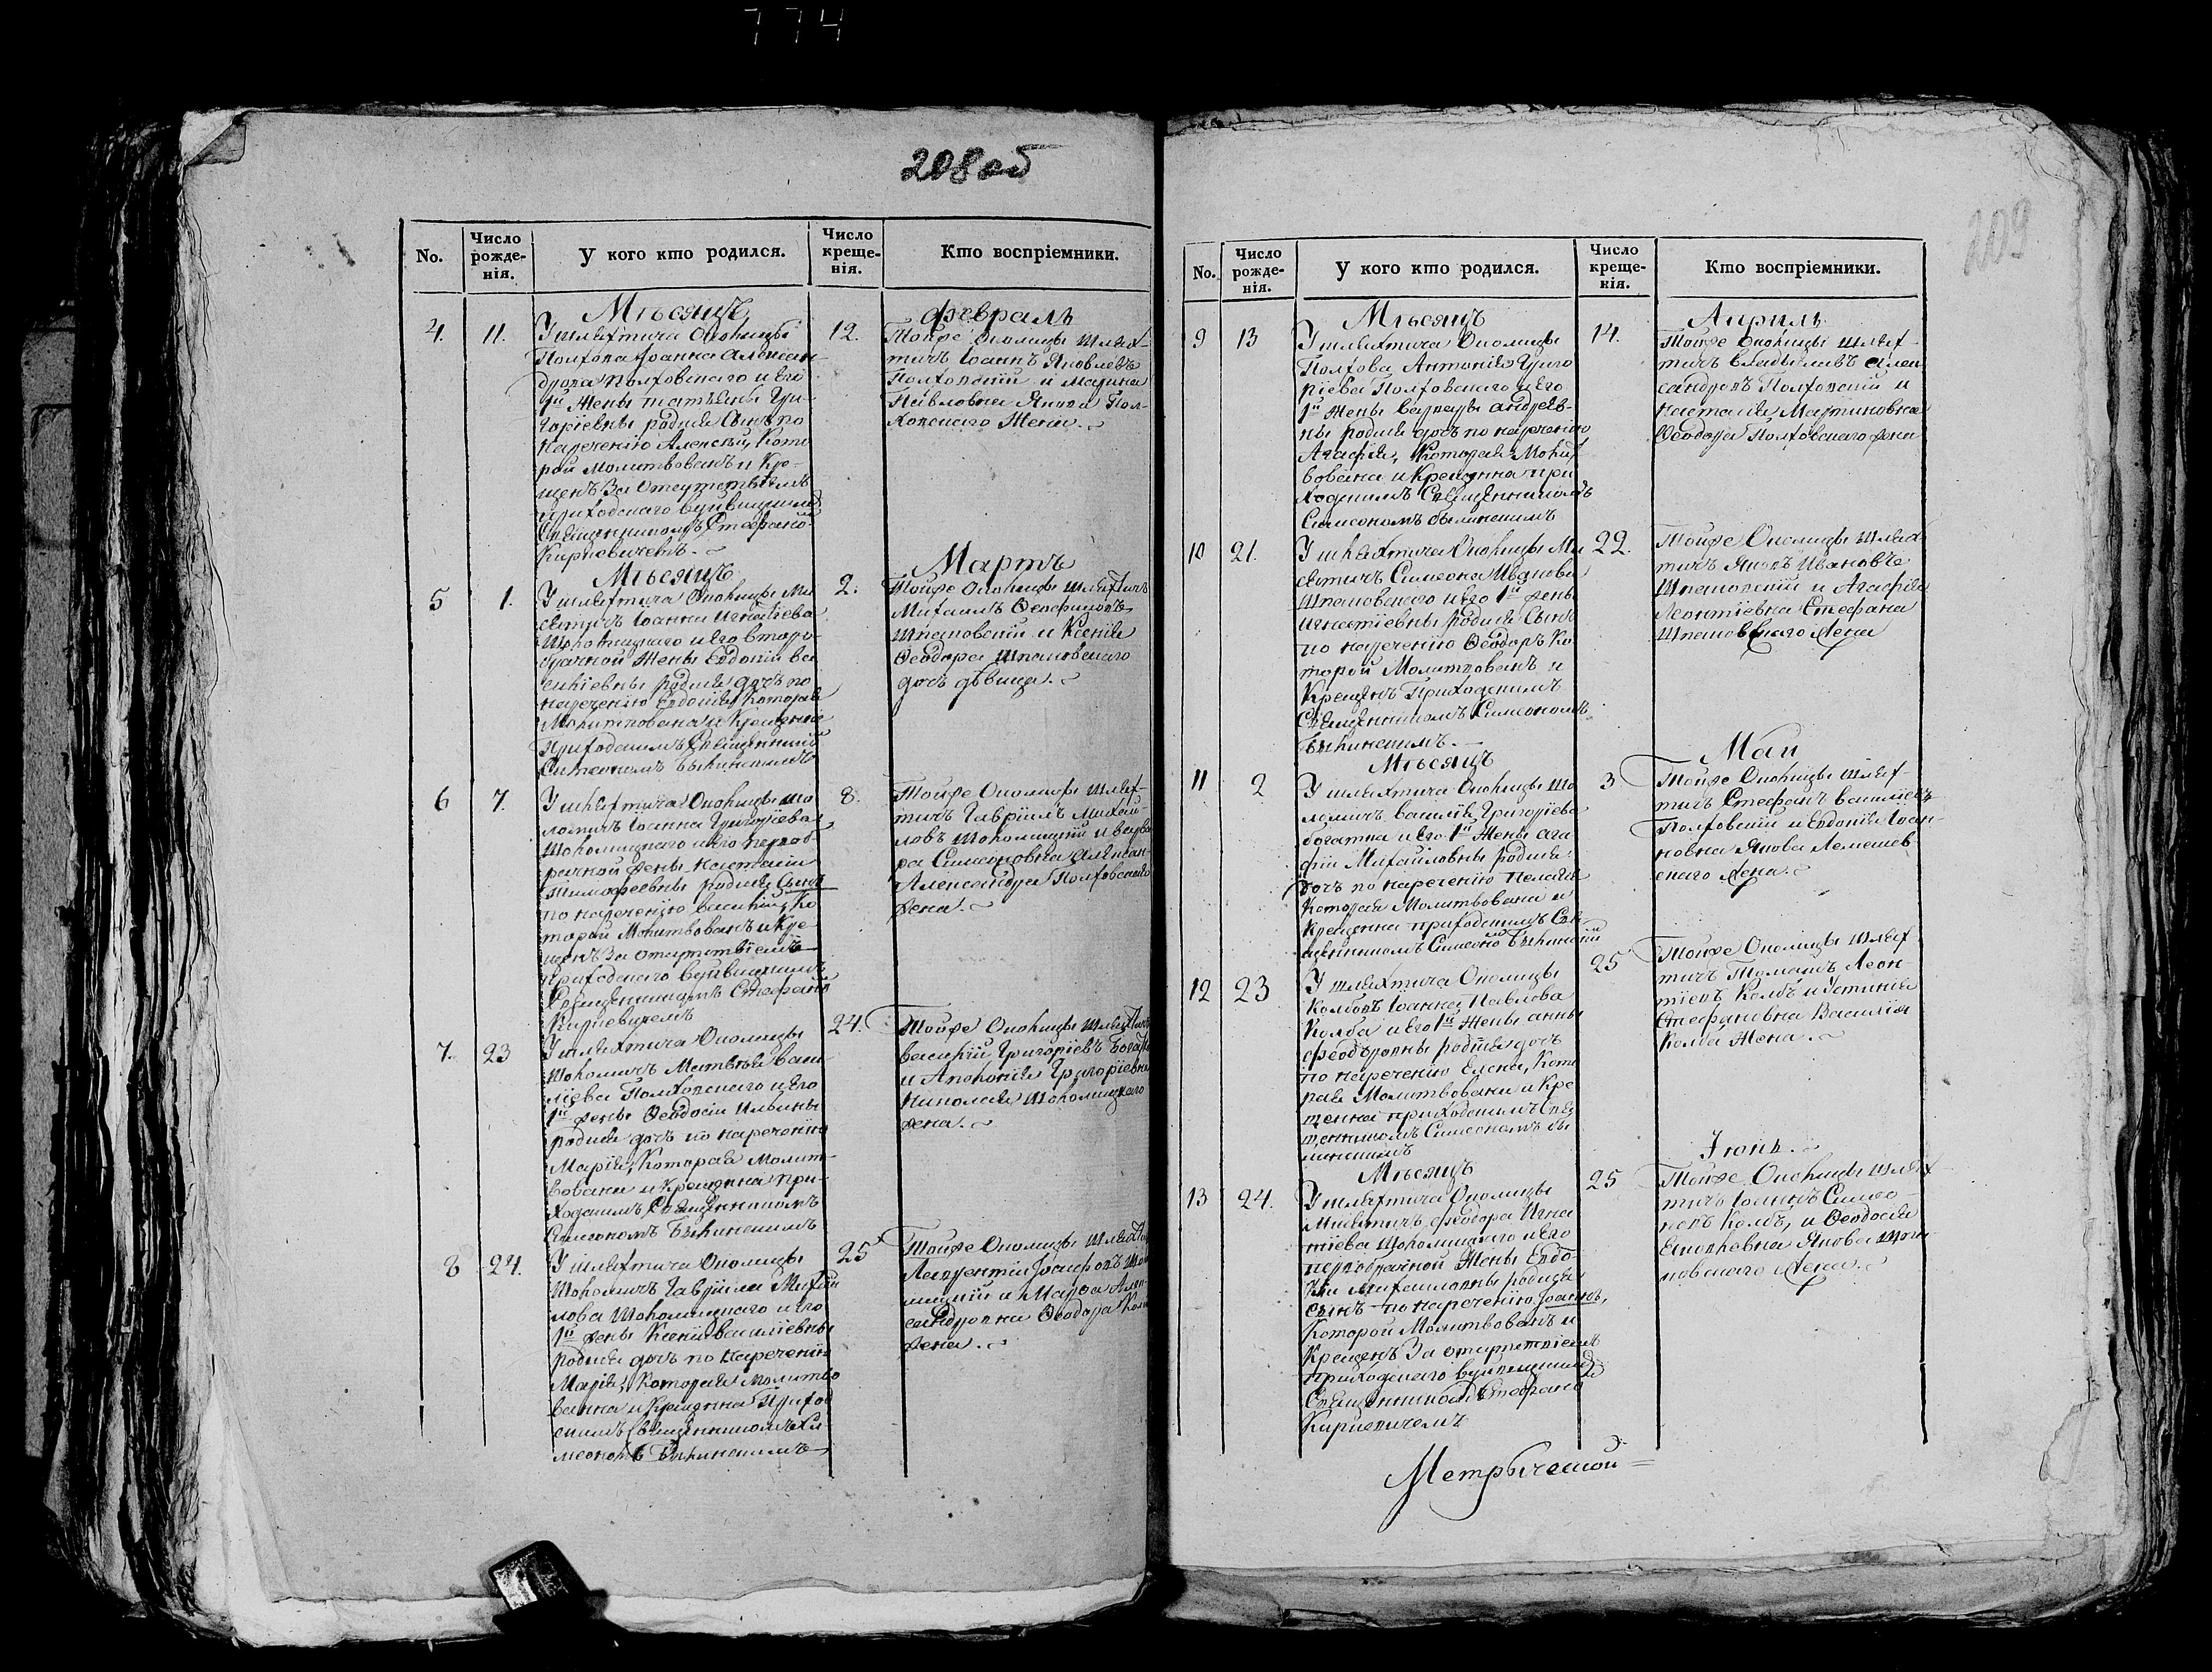 774
208 об
No.
Число рожде- нія.
У кого кто родился.
Число креще- нія.
Кто воспріемники.
Мѣсяцъ
февраль
4.
11.
У шляхтича Околицы
Полхова Іоанна Алексан-
дрова Полховскаго и его
1й Жены Татьяны Гри-
горіевны родился Сынъ по
Наречению Алексѣй, Кото
рой Молитвованъ и Кре-
щенъ За отсутствіемъ
приходскаго
Священникомъ Стефано
Киркевичемъ.
12.
Тойже Околицы Шлях-
тичъ Іоаннъ Яковлевъ
Полховскій и Марина
Павловна Якова Пол-
ховскаго Жена.
Мѣсяцъ
Мартъ
5
1.
У шляхтича Околицы Ми
Іоанна Игнатіева
Шоломицкаго и его второ-
брачной Жены Евдокіи Ва
силіевны родися дочь по
наречению Евдокія, Которая
Молитвована и Крещенна
Приходскимъ Священникомъ
Симеономъ
2.
Тойже Околицы Шляхтичъ
Михаилъ
Шпаковскій и Ксенія
Ѳеодора Шпаковскаго
дочь дѣвица.
6
7.
У шляхтича Околицы Шо
ломичъ Іоанна Григоріева
Шоломицкаго и его перво-
брачной Жены Настасіи
Тимофеевны родися Сынъ
по наречению Василій, Ко
торой Молитвованъ и Кре
щенъ За отсутствіемъ
приходскаго
Священникомъ Стефано
Киркевичемъ
8.
Тойже Околицы Шлях-
тичъ Гавріилъ Михай
ловъ Шоломицкій и Варва
ра Симеоновна Алексан-
Александра Полховскаго
Жена.
7.
23
У шляхтича Околицы
Шоломичъ Матвѣя Васи
ліева Полховскаго и его
1й Жены Ѳеодосіи Ильины
родися дочь по наречению
Марія, Которая Молит-
вована и Крещенна При-
ходскимъ Священникомъ
Симеономъ
24.
Тойже Околицы Шляхтичъ
Василій Григоріевъ
и Аполонія Григоріевна
Николая Шоломицкаго
Жена.
8
24.
У шляхтича Околицы
Шоломичъ Гавріила Михай
лова Шоломицкаго и его
1й Жены Ксеніи Василіевны
родися дочь по Наречению
Марія, Которая Молитво
ванна и Крещенна Приход
скимъ Священникомъ Си
меономъ
25
Тойже Околицы
Іосифовъ
и Марфа Алек
сандровна Ѳеодора
Жена.
209
No.
Число рожде- нія.
У кого кто родился.
Число креще- нія.
Кто воспріемники.
Мѣсяцъ
Априль
9
13
У шляхтича Околицы
Полхова Антонія Григо
ріева Полховскаго и его
1й Жены Варвары Андреев-
ны родися дочь по наречению
Агафія, Которая Молит
вована и Крещенна при
ходскимъ Священникомъ
Симеономъ
14.
Тойже Околицы Шлях-
тичъ Владиславъ Алек
сандровъ Полховскій и
Настасія Мартиновна
Ѳеодора Полховскаго Жена
10
21.
У шляхтича Околицы
Симеона Иванова
Шпаковскаго и его 1й Жены
Игнатіевны родися Сынъ
по наречению Ѳеодоръ, Ко
торой Молитвованъ и
Крещенъ Приходскимъ
Священникомъ Симеономъ
22.
Тойже Околицы Шлях
тичъ Яковъ Ивановъ
Шпаковскій и Агафія
Леонтіевна Стефана
Шпаковскаго Жена
Мѣсяцъ
Май
11
2
У шляхтича Околицы Шо
ломичъ Василія Григоріева
и его 1й Жены Ага
фіи Михайловны родися
дочь по наречению Пелагія
Которая Молитвована и
Крещенна приходскимъ Свя-
щенникомъ Симеоно
3
Тойже Околицы Шлях-
тичъ Стефанъ Василіевъ
Полховскій и Евдокія Іоан-
новна Якова Лемешев
скаго Жена.
12
23
У шляхтича Околицы
Колбовъ Іоанна Павлова
Колба и его 1й Жены Анны
Феодоровны родися дочь
по наречению Елена, Кото
рая Молитвована и Кре
щенна приходскимъ Свя
щенникомъ Симеономъ
25
Тойже Околицы Шлях
тичъ Томашъ Леон-
тіевъ Колбъ и Устинія
Стефановна Василія
Колба Жена.
Мѣсяцъ
Іюнь.
13
24.
У шляхтича Околицы
Феодора Игна
тіева Шоломицкаго и его
первобрачной Жены Евдо
кіи Михайловны родися
сынъ по наречению Іоаннъ,
Которой Молитвованъ и
Крещенъ За отсутствіемъ
приходскаго
Священникомъ Стефано
Киркевичемъ
25
Тойже Околицы Шлях
тичъ Іоаннъ Симео-
новъ Колбъ, и Ѳеодосія
Якова
Жена.
Метрической